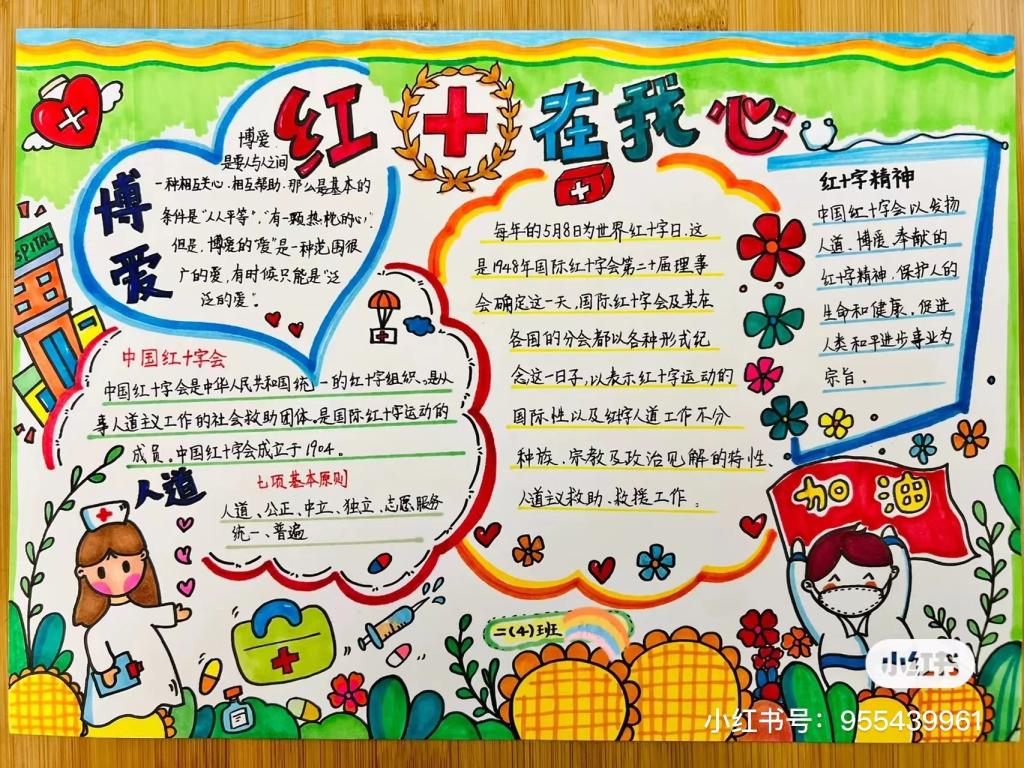 红十在我心
博爱
博爱
是要人与人之间
一种相互关心.相互帮助.那么最基本的
条件是"人人平等","有一颗热忱的心".
但是.博爱的"爱"是一种范围很
广的爱,有时候只能是"泛
泛的爱".
HOSPITAL
中国红十字会
中国红十字会是中华人民共和国统一的红十字组织.是从
事人道主义工作的社会救助团体.是国际红十字运动的
成员.中国红十字会成立于1904.
七项基本原则
人道、公正、中立、独立、志愿服务
统一、普遍
人道
每年的5月8日为世界红十字日.这
是1948年国际红十字会第二十届理事
会确定这一天,国际红十字会及其在
各国的分会都以各种形式纪
念这一日子,以表示红十字运动的
国际性以及红字人道工作不分
种族、宗教及政治见解的特性、
人道主义救助、救援工作。
红十字精神
中国红十字会以发扬
人道、博爱.奉献的
红十字精神,保护人的
生命和健康,促进
人类和平进步事业为
宗旨.
加油
二(4)班
小红书
小红书号：955439961